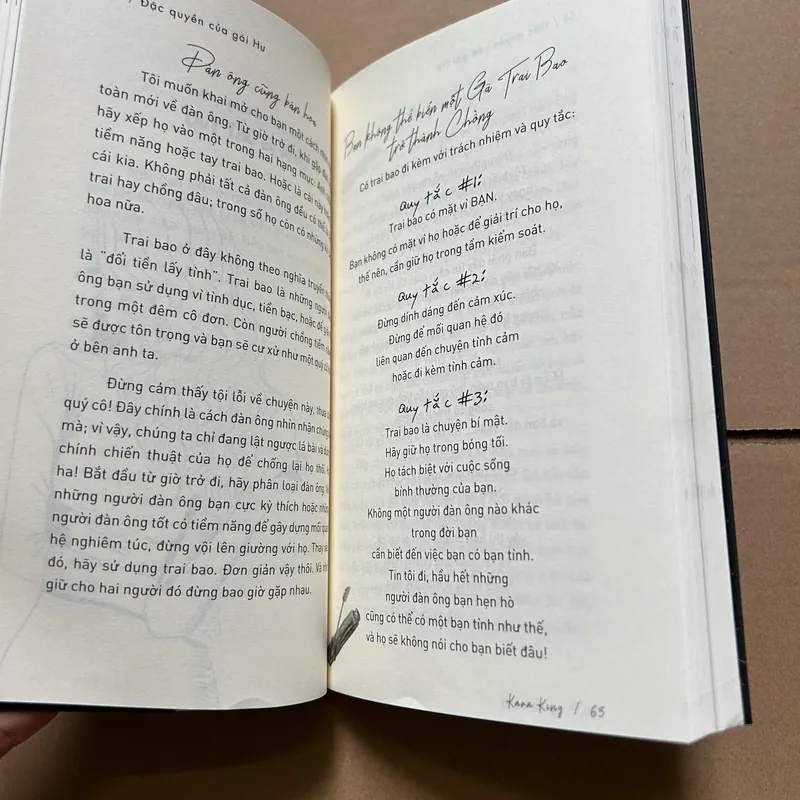 / Đặc quyền của gái Hư
Đàn ông cũng bán hoa
Tôi muốn khai mở cho bạn một cách nhìn
toàn mới về đàn ông. Từ giờ trở đi, khi gặp
hãy xếp họ vào một trong hai hạng mục:
tiềm năng hoặc tay trai bao. Hoặc là cái này
cái kia. Không phải tất cả đàn ông đều có thể
trai hay chồng đâu; trong số họ còn có những
hoa nữa.
Trai bao ở đây không theo nghĩa truyền
là "đổi tiền lấy tình". Trai bao là những người
ông bạn sử dụng vì tình dục, tiền bạc, hoặc để
trong một đêm cô đơn. Còn người chồng tiềm
sẽ được tôn trọng và bạn sẽ cư xử như một quý
ở bên anh ta.
Đừng cảm thấy tội lỗi về chuyện này, thưa
quý cô! Đây chính là cách đàn ông nhìn nhận chúng
mà; vì vậy, chúng ta chỉ đang lật ngược lá bài và
chính chiến thuật của họ để chống lại họ thôi.
ha! Bắt đầu từ giờ trở đi, hãy phân loại đàn ông.
những người đàn ông bạn cực kỳ thích hoặc
người đàn ông tốt có tiềm năng để gây dựng mối
hệ nghiêm túc, đừng vội lên giường với họ. Thay
đó, hãy sử dụng trai bao. Đơn giản vậy thôi. Và
giữ cho hai người đó đừng bao giờ gặp nhau.
Bạn không thể biến một Gã Trai Bao
trở thành Chồng
Có trai bao đi kèm với trách nhiệm và quy tắc:
Quy tắc #1:
Trai bao có mặt vì BẠN.
Bạn không có mặt vì họ hoặc để giải trí cho họ,
thế nên, cần giữ họ trong tầm kiểm soát.
Quy tắc #2:
Đừng dính dáng đến cảm xúc.
Đừng để mối quan hệ đó
liên quan đến chuyện tình cảm
hoặc đi kèm tình cảm.
Quy tắc #3:
Trai bao là chuyện bí mật.
Hãy giữ họ trong bóng tối.
Họ tách biệt với cuộc sống
bình thường của bạn.
Không một người đàn ông nào khác
trong đời bạn
cần biết đến việc bạn có bạn tình.
Tin tôi đi, hầu hết những
người đàn ông bạn hẹn hò
cũng có thể có một bạn tình như thế,
và họ sẽ không nói cho bạn biết đâu!
Kara King / 65